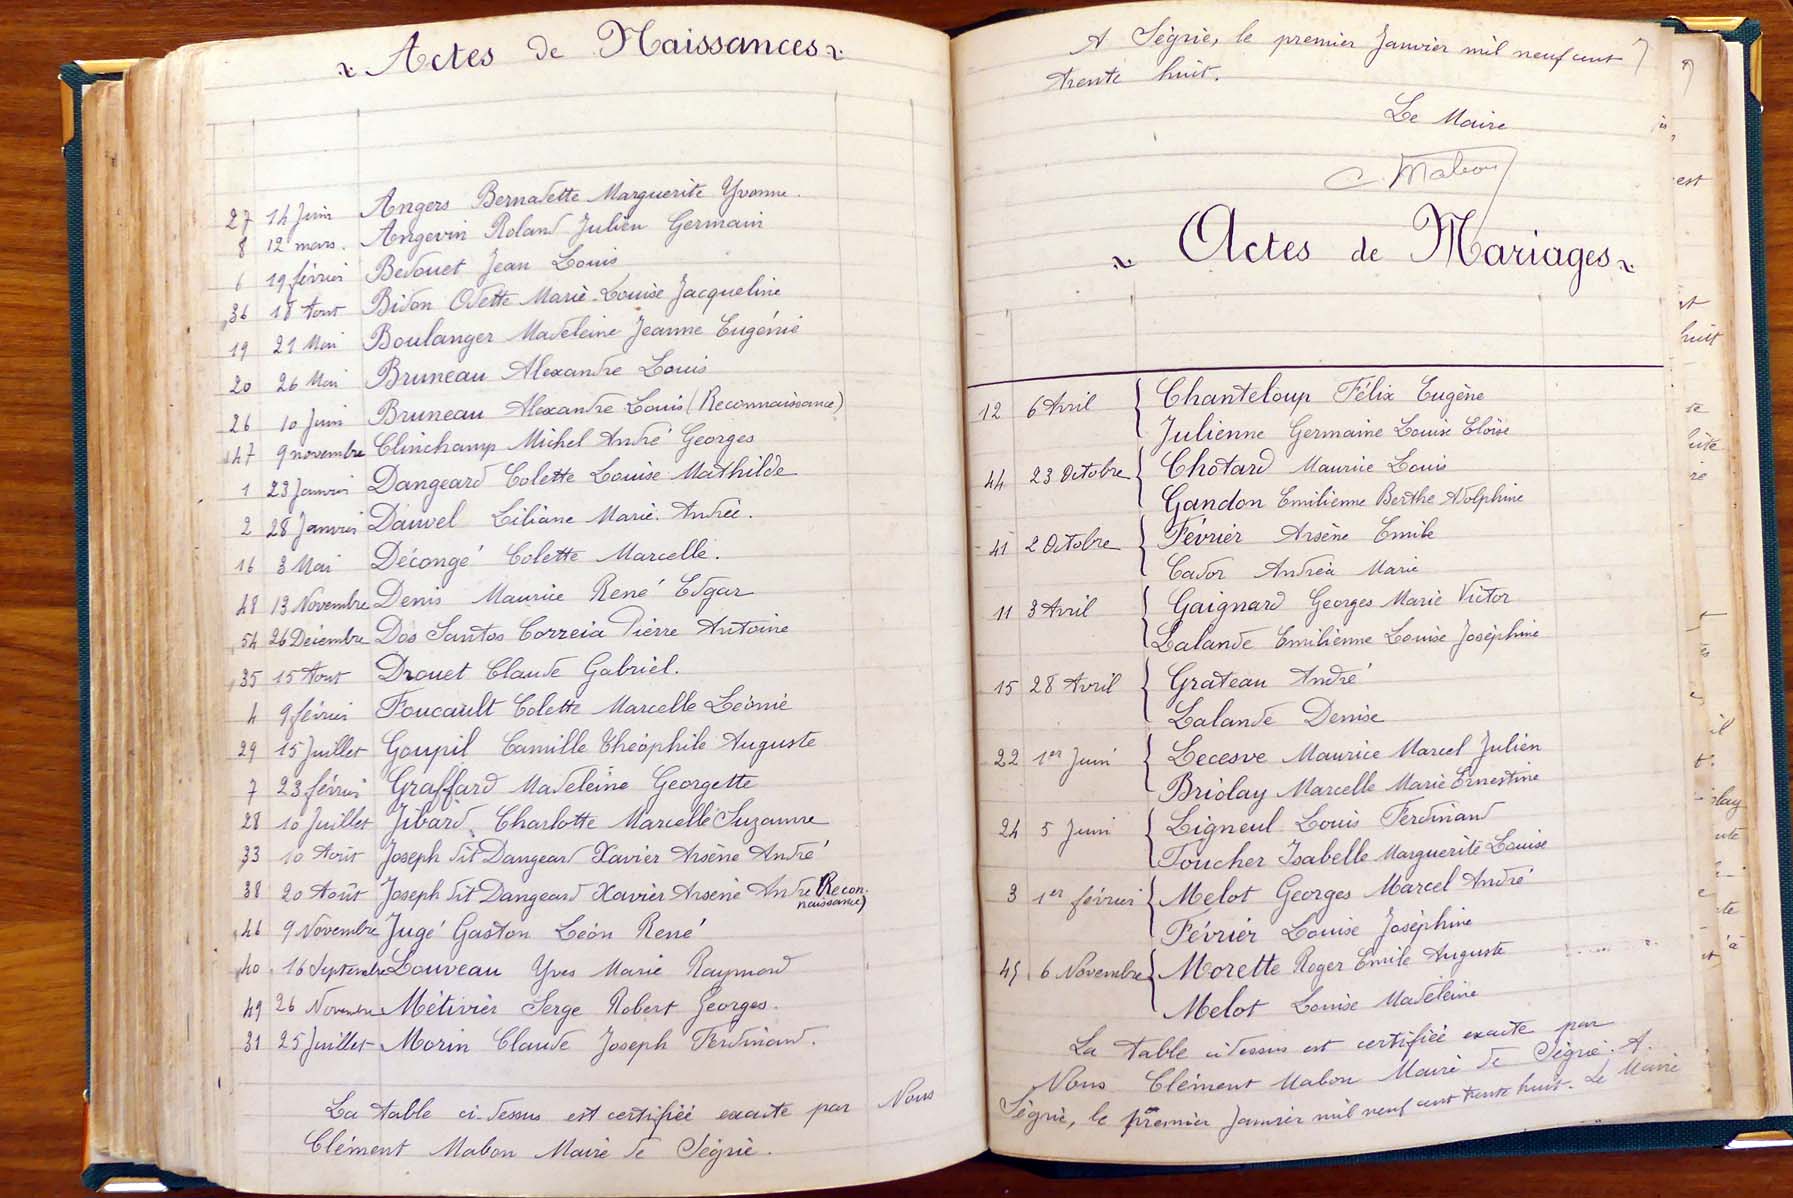 Actes de Naissances
27 14 Juin Angers Bernadette Marguerite Yvonne.
8 12 mars. Angevin Roland Julien Germain
6 19 février Bedouet Jean Louis
36 18 Aout Bidon Odette Marie-Louise Jacqueline
19 21 Mai Boulanger Madeleine Jeanne Eugénie
20 26 Mai Bruneau Alexandre Louis
26 10 Juin Bruneau Alexandre Louis (Reconnaissance)
47 9 novembre Clinchamp Michel André Georges
1 23 Janvier Dangeard Colette Louise Mathilde
2 28 Janvier Dauvel Liliane Marie. Andrée.
16 3 Mai Décongé Colette Marcelle.
48 13 Novembre Denis Maurice René Edgar
54 26 Décembre Dos Santos Correia Pierre Antoine
35 15 Aout Drouet Claude Gabriel.
4 9 février Foucault Colette Marcelle Léonie
29 15 Juillet Goupil Camille Théophile Auguste
7 23 février Graffard Madeleine Georgette
28 10 Juillet Jibard Charlotte Marcelle Suzanne
33 10 Août Joseph dit Dangeard Xavier Arsène André
38 20 Août Joseph dit Dangeard Xavier Arsène André (Recon-
naissance)
46 9 Novembre Jugé Gaston Léon René
40 16 Septembre Louveau Yves Marie Raymond
49 26 Novembre Métivier Serge Robert Georges.
31 25 Juillet Morin Claude Joseph Ferdinand.
La table ci-dessus est certifiée exacte par Nous
Clément Mabon Maire de Ségrie.
A Ségrie, le premier Janvier mil neuf cent
trente huit.
Le Maire
C. Mabon
Actes de Mariages
12 6 Avril { Chanteloup Félix Eugène
Julienne Germaine Louise Eloïse
44 23 Octobre { Chotard Maurice Louis
Gandon Emilienne Berthe Adolphine
41 2 Octobre { Février Arsène Emile
Cador Andréa Marie
11 3 Avril { Gaignard Georges Marie Victor
Lalande Emilienne Louise Joséphine
15 28 Avril { Grateau André
Lalande Denise
22 1er Juin { Lecesve Maurice Marcel Julien
Briolay Marcelle Marie Ernestine
24 5 Juin { Ligneul Louis Ferdinand
Foucher Isabelle Marguerite Louise
3 1er février { Melot Georges Marcel André
Février Louise Joséphine
45 6 Novembre { Morette Roger Emile Auguste
Melot Louise Madeleine
La table ci dessus est certifiée exacte par
Nous Clément Mabon Maire de Ségrie. A
Ségrie, le premier Janvier mil neuf cent trente huit. Le Maire